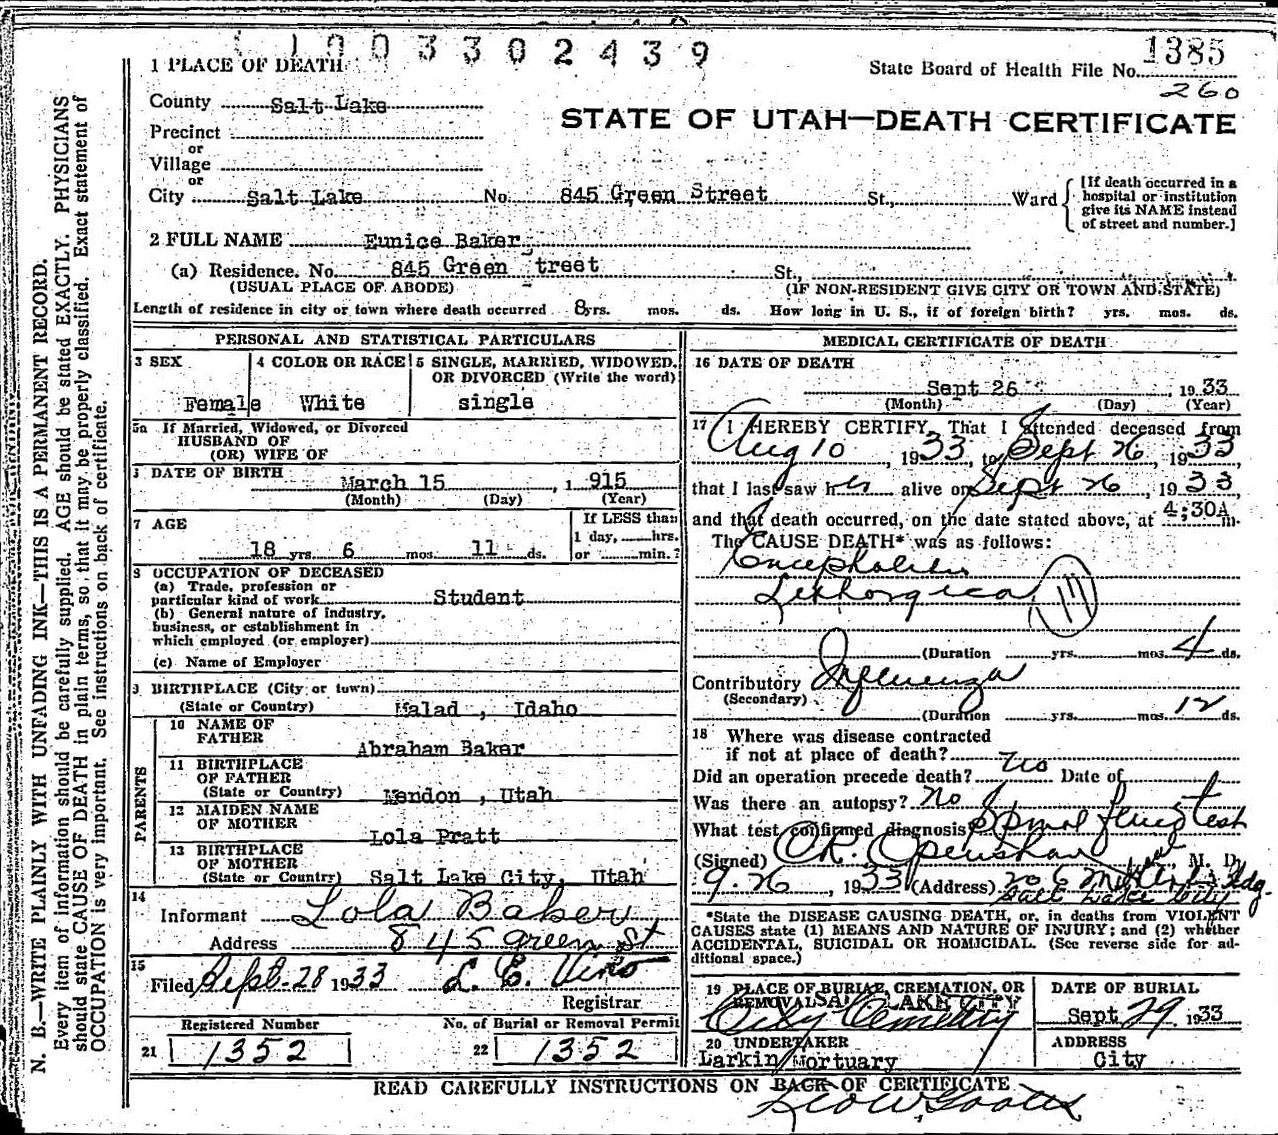 1003302439
1385
1 PLACE OF DEATH
State Board of Health File No.
260
County Salt Lake
STATE OF UTAH—DEATH CERTIFICATE
Precinct
or
Village
or
City Salt Lake No. 845 Green Street St., Ward
[If death occurred in a
hospital or institution
give its NAME instead
of street and number.]
2 FULL NAME Eunice Baker
(a) Residence. No. 845 Green treet St.,
(USUAL PLACE OF ABODE) (IF NON-RESIDENT GIVE CITY OR TOWN AND STATE)
Length of residence in city or town where death occurred 8 yrs. mos. ds. How long in U. S., if of foreign birth? yrs. mos. ds.
PERSONAL AND STATISTICAL PARTICULARS
3 SEX
Female
4 COLOR OR RACE
White
5 SINGLE, MARRIED, WIDOWED,
OR DIVORCED (Write the word)
single
5a If Married, Widowed, or Divorced
HUSBAND OF
(OR) WIFE OF
DATE OF BIRTH
March 15, 1915
(Month) (Day) (Year)
7 AGE
18 yrs. 6 mos. 11 ds.
If LESS than
1 day, hrs.
or min.?
8 OCCUPATION OF DECEASED
(a) Trade, profession or
particular kind of work Student
(b) General nature of industry,
business, or establishment in
which employed (or employer)
(c) Name of Employer
9 BIRTHPLACE (City or town)
(State or Country) Malad, Idaho
PARENTS
10 NAME OF
FATHER Abraham Baker
11 BIRTHPLACE
OF FATHER
(State or Country) Mendon, Utah
12 MAIDEN NAME
OF MOTHER Lola Pratt
13 BIRTHPLACE
OF MOTHER
(State or Country) Salt Lake City, Utah
14
Informant Lola Baker
Address 845 Green St
15
Filed Sept. 28 1933 L. E. Viko
Registrar
Registered Number
21 1352
No. of Burial or Removal Permit
22 1352
MEDICAL CERTIFICATE OF DEATH
16 DATE OF DEATH
Sept 26, 1933
(Month) (Day) (Year)
17 I HEREBY CERTIFY, That I attended deceased from
Aug 10, 1933, to Sept 26, 1933,
that I last saw her alive on Sept 26, 1933,
and that death occurred, on the date stated above, at 4;30A m.
The CAUSE DEATH* was as follows:
Encephalitis
Lethargica
(Duration yrs. mos. 4 ds.
Contributory Influenza
(Secondary)
(Duration yrs. mos. 12 ds.
18 Where was disease contracted
if not at place of death?
Did an operation precede death? no Date of
Was there an autopsy? no
What test confirmed diagnosis Spinal fluid test
(Signed) C.R. Openshaw, M. D.
9-26, 1933 (Address) 206 Medical Arts Bldg.
Salt Lake City
*State the DISEASE CAUSING DEATH, or, in deaths from VIOLENT
CAUSES state (1) MEANS AND NATURE OF INJURY; and (2) whether
ACCIDENTAL, SUICIDAL OR HOMICIDAL. (See reverse side for ad-
ditional space.)
19 PLACE OF BURIAL, CREMATION, OR
REMOVAL SALT LAKE CITY
City Cemetery
DATE OF BURIAL
Sept 29 1933
20 UNDERTAKER
Larkin Mortuary
ADDRESS
City
READ CAREFULLY INSTRUCTIONS ON BACK OF CERTIFICATE
N. B.—WRITE PLAINLY WITH UNFADING INK—THIS IS A PERMANENT RECORD.
Every item of information should be carefully supplied. AGE should be stated EXACTLY. PHYSICIANS
should state CAUSE OF DEATH in plain terms, so that it may be properly classified. Exact statement of
OCCUPATION is very important. See instructions on back of certificate.